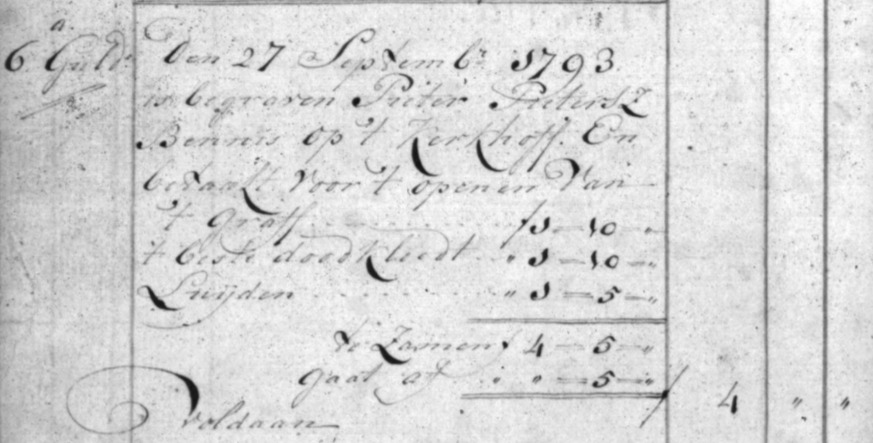 a.
6 Guld:s Den 27 Septemb:r 1793.
is begraven Pieter Pietersz
Bennis op 't Kerkhoff. En
betaalt voor 't openen Van
't graff ƒ 1 - 10 - "
't beste doodkleedt " 1 - 10 - "
Luijden " 1 - 5 - "
te Zamen ƒ 4 - 5 - "
gaat af " " - 5 - "
voldaan ƒ 4 " "